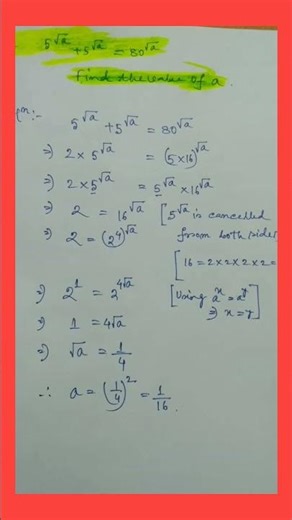 5^√a + 5^√a = 80^√a
Find the value of a.
5^√a + 5^√a = 80^√a
⇒) 2 × 5^√a = (5 × 16)^√a
⇒) 2 × 5^√a = 5^√a × 16^√a
⇒) 2 = 16^√a [5^√a is cancelled
from both sides
⇒) 2 = (2^4)^√a
[16 = 2 × 2 × 2 × 2 =
⇒) 2^1 = 2^4√a [Using a^x = a^y
⇒ x = y]
⇒) 1 = 4√a
⇒) √a = 1/4
∴ a = (1/4)^2 = 1/16.